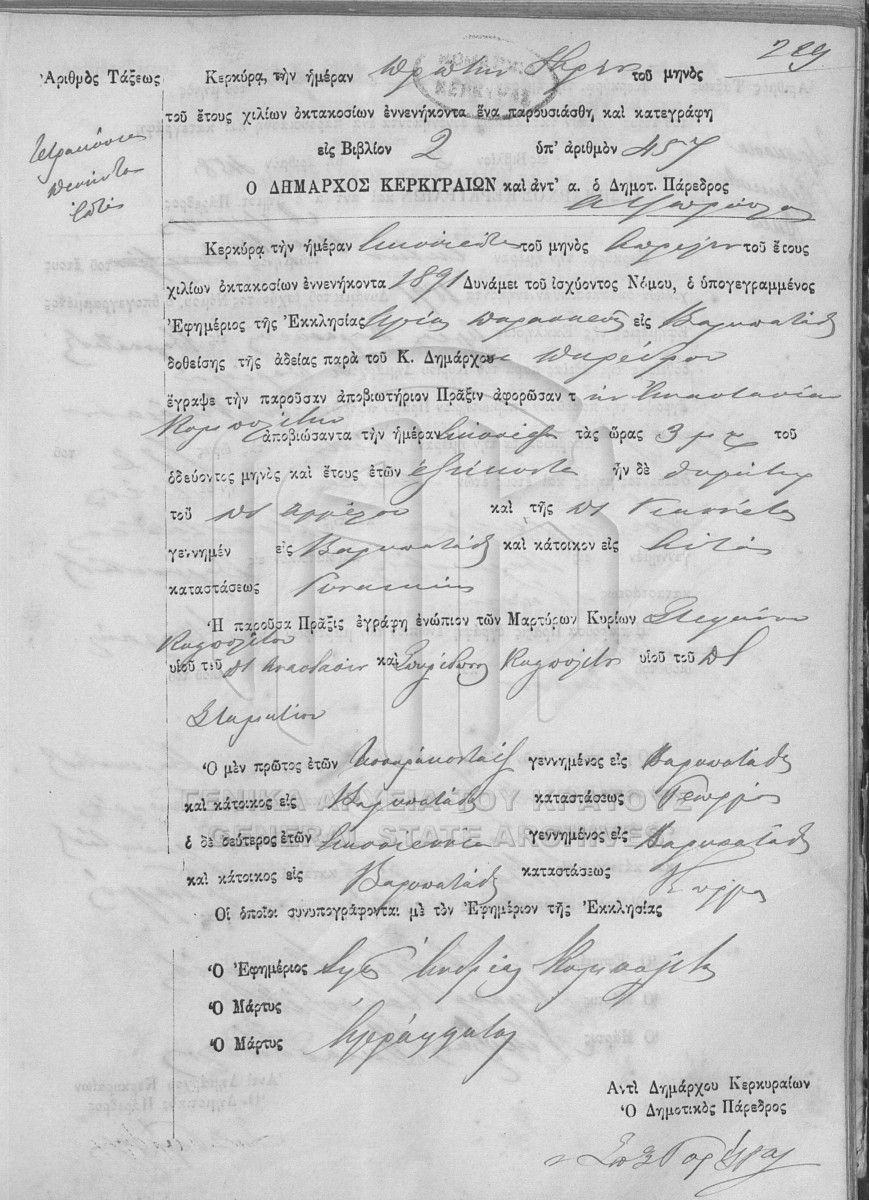 229
Ἀριθμὸς Τάξεως
Κερκύρᾳ, τὴν ἡμέραν πρώτην τοῦ μηνὸς
τοῦ ἔτους χιλίων ὀκτακοσίων ἐννενήκοντα ἕνα παρουσιάσθη καὶ κατεγράφη
εἰς Βιβλίον 2 ὑπ' ἀριθμὸν 457
Τετρακόσια
πενῆντα
ἑπτὰ
Ο ΔΗΜΑΡΧΟΣ ΚΕΡΚΥΡΑΙΩΝ καὶ ἀντ' α. ὁ Δημοτ. Πάρεδρος
Κερκύρᾳ τὴν ἡμέραν τοῦ μηνὸς Ἀπριλίου τοῦ ἔτους
χιλίων ὀκτακοσίων ἐννενήκοντα 1891 Δυνάμει τοῦ ἰσχύοντος Νόμου, ὁ ὑπογεγραμμένος
Ἐφημέριος τῆς Ἐκκλησίας Ἁγίας Παρασκευῆς εἰς Βαρυπατάδες
δοθείσης τῆς ἀδείας παρὰ τοῦ Κ. Δημάρχου Παρέδρου
ἔγραψε τὴν παροῦσαν ἀποβιωτήριον Πρᾶξιν ἀφορῶσαν τ ὴν Ἀναστασίαν
Κομπολίτη
ἀποβιώσαντα τὴν ἡμέραν τὰς ὥρας 3 μ μ τοῦ
ὁδεύοντος μηνὸς καὶ ἔτους ἐτῶν ἑξήκοντα ἦν δὲ θυγάτηρ
τοῦ πτ Ἀγγέλου καὶ τῆς πτ Γιαννέτας
γεννημέν εἰς Βαρυπατάδες καὶ κάτοικον εἰς
καταστάσεως
Ἡ παροῦσα Πρᾶξις ἐγράφη ἐνώπιον τῶν Μαρτύρων Κυρίων Στεφάνου
Κομπολίτη
υἱοῦ τοῦ πτ Ἀναστασίου καὶ Σπυρίδωνος Κομπολίτη υἱοῦ τοῦ πτ
Σταματίου
Ὁ μὲν πρῶτος ἐτῶν γεννημένος εἰς Βαρυπατάδες
καὶ κάτοικος εἰς Βαρυπατάδες καταστάσεως Γεωργὸς
ὁ δὲ δεύτερος ἐτῶν γεννημένος εἰς Βαρυπατάδες
καὶ κάτοικος εἰς Βαρυπατάδες καταστάσεως Γεωργὸς
Οἱ ὁποῖοι συνυπογράφονται μὲ τὸν Ἐφημέριον τῆς Ἐκκλησίας
Ὁ Ἐφημέριος Ἀνδρέας Κομπολίτης
Ὁ Μάρτυς
Ὁ Μάρτυς Ἀγράμματοι
Αντὶ Δημάρχου Κερκυραίων
Ὁ Δημοτικὸς Πάρεδρος
ΓΕΝΙΚΑ ΑΡΧΕΙΑ ΤΟΥ ΚΡΑΤΟΥΣ
GENERAL STATE ARCHIVES